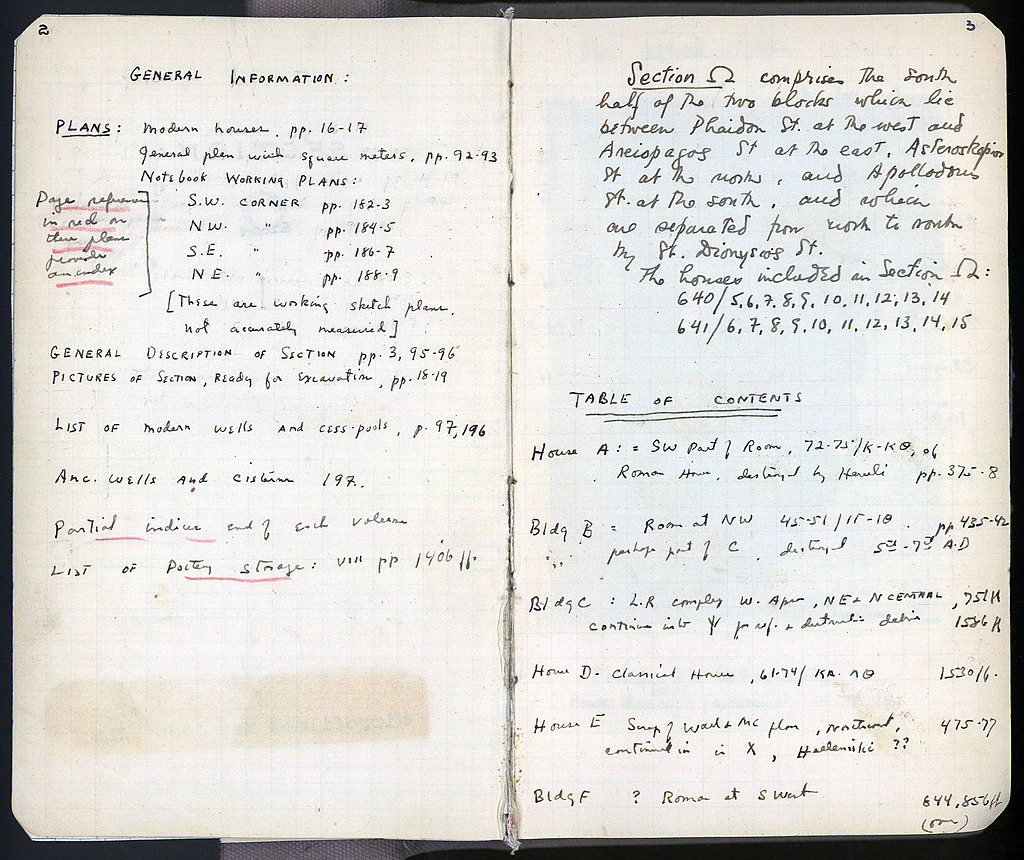 2
GENERAL INFORMATION:
PLANS: Modern houses, pp. 16-17
General plan with square meters, pp. 92-93
NOTEBOOK WORKING PLANS:
S.W. CORNER pp. 182-3
N.W. " pp. 184-5
S.E. " pp. 186-7
N.E. " pp. 188-9
Page references
in red on
these plans
provide
an index
[These are working sketch plans,
not accurately measured]
GENERAL DESCRIPTION OF SECTION pp. 3, 95-96
PICTURES OF SECTION, READY for EXCAVATION, pp. 18-19
LIST OF modern wells AND cess-pools, p. 97, 196
Anc. wells and cisterns 197.
Partial indices end of each volume
LIST OF Pottery storage: VIII pp 1406 ff.
3
Section Ω comprises the south
half of the two blocks which lie
between Phaidon St. at the west and
Areiopagos St at the east, Asteroskopion
St at the north, and Apollodorus
St. at the south, and which
are separated from north to north
by St. Dionysios St.
The houses included in Section Ω:
640/5, 6, 7, 8, 9, 10, 11, 12, 13, 14
641/6, 7, 8, 9, 10, 11, 12, 13, 14, 15
TABLE OF CONTENTS
House A: = SW Part of Room, 72-75/K-KΘ, of
Roman House, destroyed by Heruli pp. 375-8
Bldg B = Room at NW 45-51/ΙΓ-ΙΘ. pp 435-42
perhaps part of C, destroyed 5th-7th A.D
Bldg C : L.R complex W. Apse, NE & N CENTRAL, 751 ff
continues into Ψ for ref. & destruction debris 1586 ff
House D - Classical House, 61-74/ ΚΛ-ΛΘ 1530 ff.
House E Scrap of Wall & MC floor, Northwest, 475-77
continued in X, Hellenistic ??
Bldg F ? Roman at S West 644, 856 ff
(over)